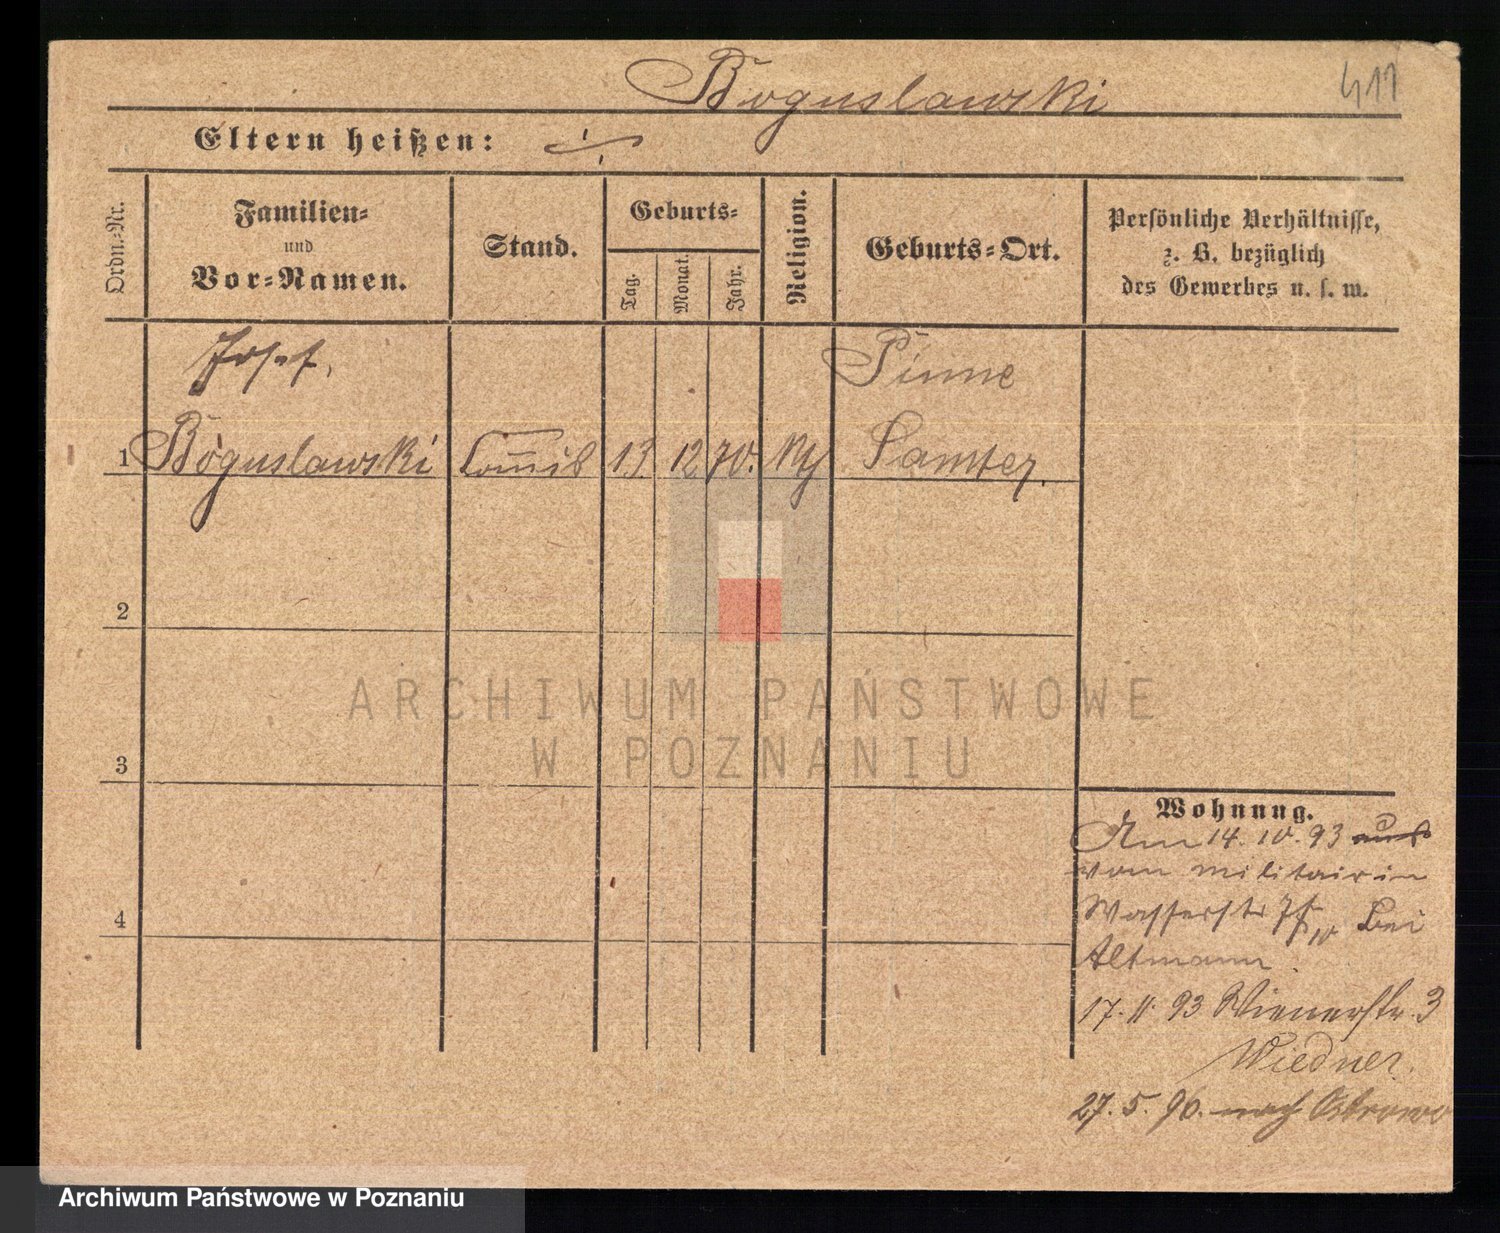 Boguslawski
411
Eltern heißen: ·/·
Ordn.-Nr.
Familien-
und
Vor-Namen.
Stand.
Geburts-
Tag.
Monat.
Jahr.
Religion.
Geburts-Ort.
Persönliche Verhältnisse,
z. B. bezüglich
des Gewerbes u. s. w.
Josef,
Pinne
1 Boguslawski Commis 13 12 70. Samter.
2
3
4
Wohnung.
Am 14. 10. 93 aus
vom militair in
Wasserstr bei
Altmann.
17. 11. 93 Wienerstr. 3
Wiedner.
27. 5. 96. nach Ostrowo
ARCHIWUM PAŃSTWOWE
W POZNANIU
Archiwum Państwowe w Poznaniu